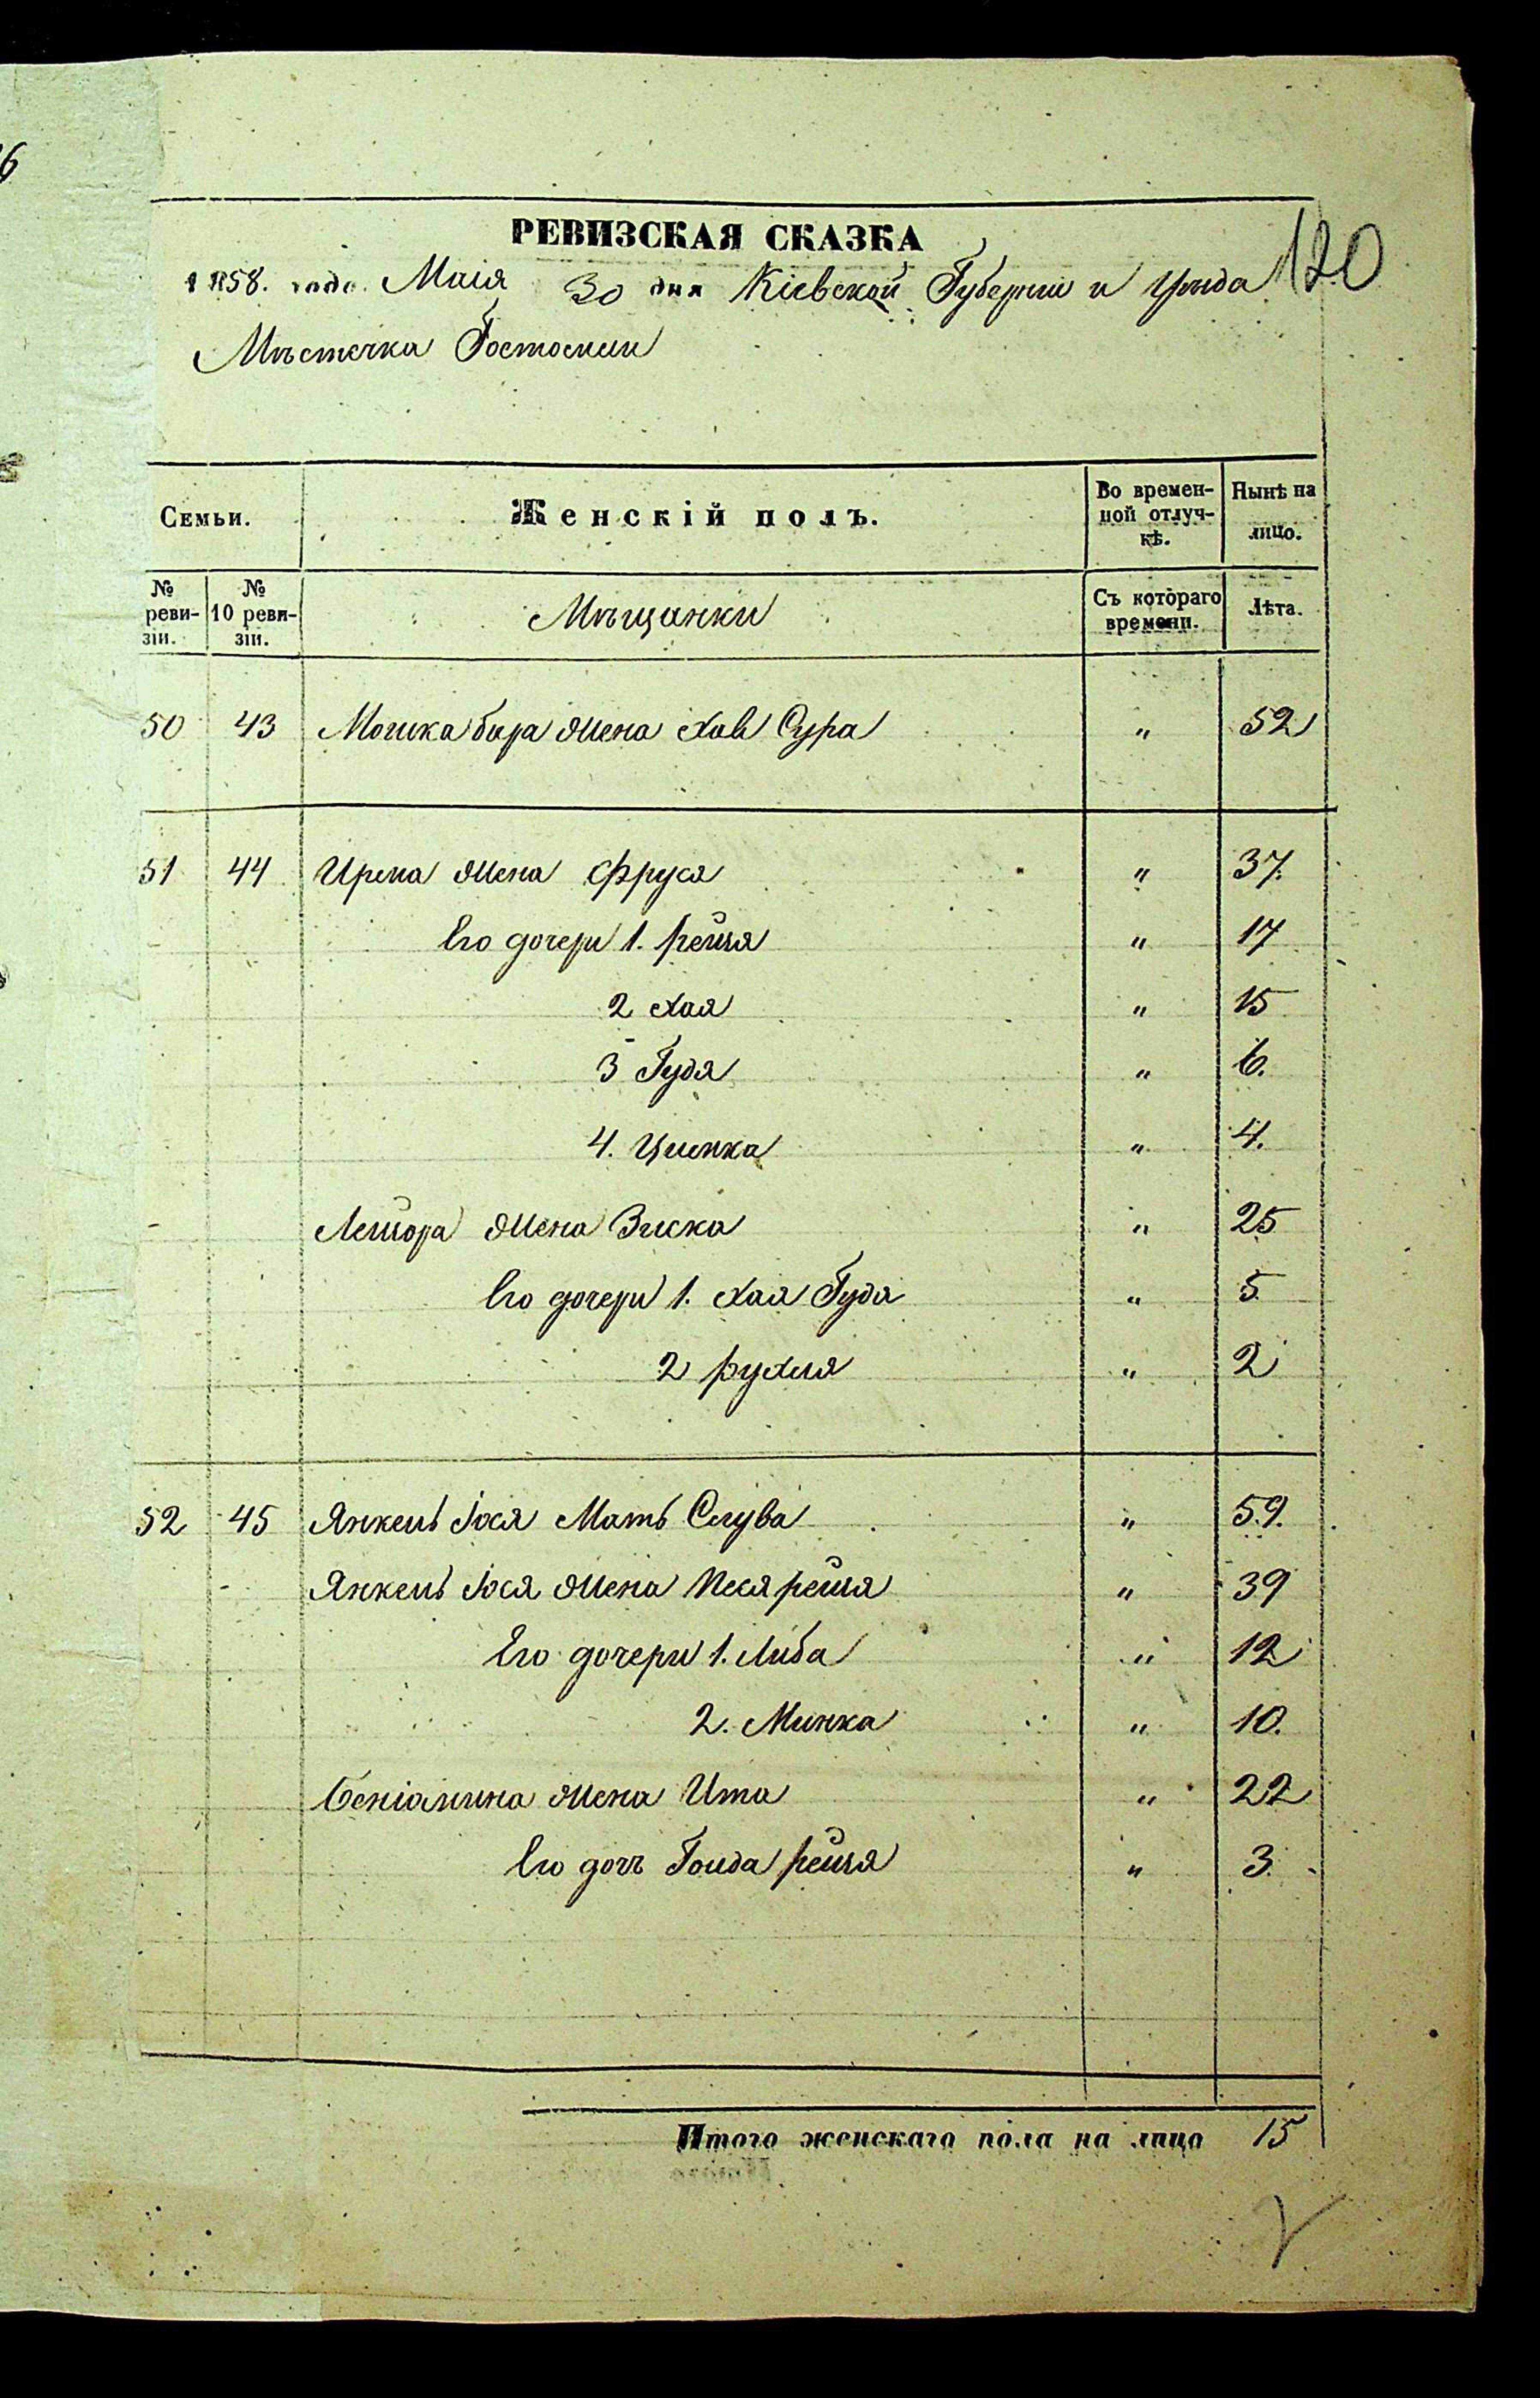 6
РЕВИЗСКАЯ СКАЗКА
120
1858. года. Маія 30 дня Кіевской Губерніи и Уѣзда
Мѣстечка Гостомли
Семьи.
Женскій полъ.
Во времен-
ной отлуч-
кѣ.
Нынѣ на
лицо.
№
реви-
зіи.
№
10 реви-
зіи.
Мѣщанки
Съ котораго
времени.
Лѣта.
50 43 Мошка бара жена Хав Сура " 52
51 44 Ирша жена Фруся " 37.
Его дочери 1. Рейзя " 17
2 Хая " 15
3 Гудя " 6.
4. Ципка " 4.
Лейзора жена Зиска " 25
Его дочери 1. Хая Гудя " 5
2 Рухля " 2
52 45 Янкель Іося Мать Слува " 59.
Янкель Іося жена Песя рейзя " 39
Его дочери 1. Либа " 12
2. Минка " 10.
Беніамина жена Ита " 22
Его дочь Голда рейзя " 3.
Итого женскаго пола на лицо 15